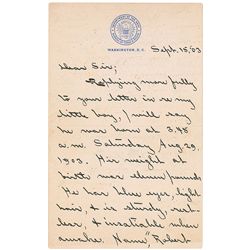 WASHINGTON, D.C.
Sept. 15/03
Dear Sir;
Replying more fully
to your letter in re my
little boy, I will say
he was born at 3.48
a.m. Saturday Aug. 29,
1903. His weight at
birth was eleven pounds.
He has blue eyes, light
hair, & is sturdy,
& insatiable when
awake. Name, "Robert